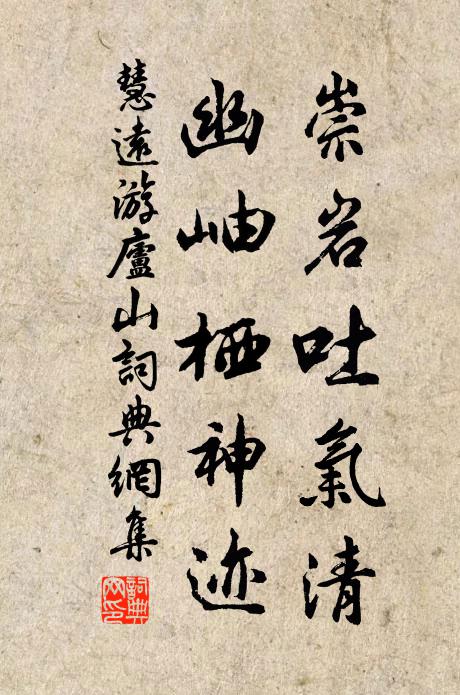 崇岩吐氣清
幽岫栖神迹
慧遠游廬山詞典網集
詞典网印